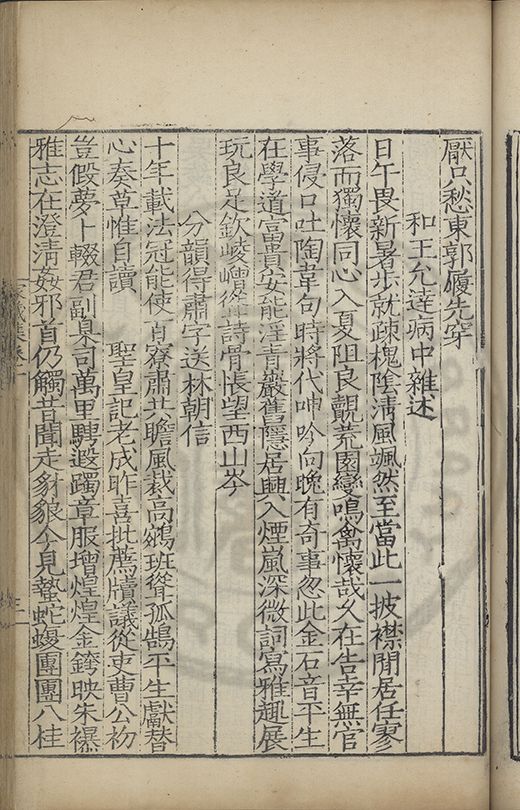 厭只愁東郭履先穿
和王允達病中雜述
日午畏新暑步就疎槐陰淸風颯然至當此一披襟閒居任寥
落而獨懷同心入夏阻良覿荒園變鳴禽懷哉久在告幸無官
事侵口吐陶韋句時將代呻吟向晚有奇事忽此金石音平生
在學道富貴安能淫青巖舊隱居興入煙嵐深微詞寫雅趣展
玩良足欽崚嶒徤詩骨悵望西山岑
分韻得肅字送林朝信
十年載法冠能使百寮肅共瞻風裁高鵷班聳孤鵠平生獻替
心奏草惟自讀 聖皇記老成昨喜批薦牘議從吏曹公祊
豈假夢卜輟君副臬司萬里騁遐躅章服增煌煌金銙映朱襮
雅志在澄淸姦邪首仍觸昔聞走豺狼今見蟄蛇蝮團團八桂
集卷
三